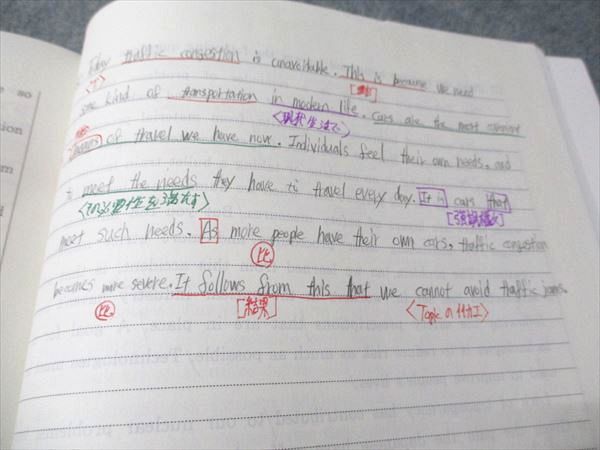 Today traffic congestion is unavoidable. This is because we need
<T>
some kind of transportation in modern life. Cars are the most convenient
<現代生活で>
means of travel we have now. Individuals feel their own needs, and
to meet the needs they have to travel every day. It is cars that
<の必要性を満たす>
[強調構文]
meet such needs. As more people have their own cars, traffic congestion
比
becomes more severe. It follows from this that we cannot avoid traffic jams.
比
[結果]
<Topic の
so
nuclear problems